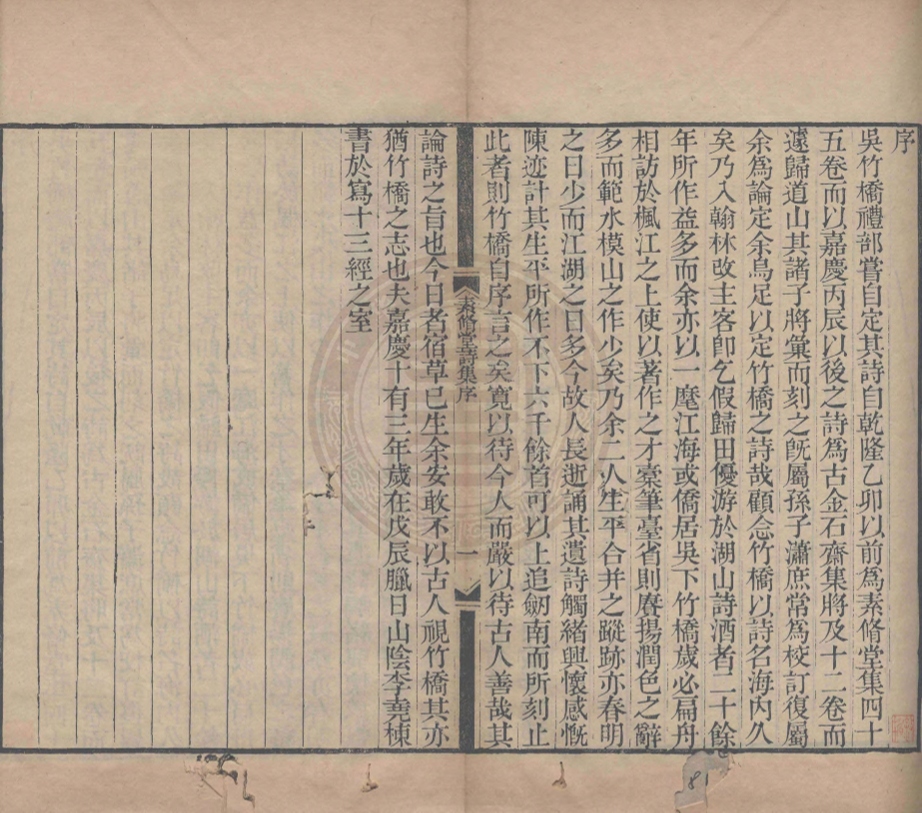 序
吳竹橋禮部嘗自定其詩自乾隆乙卯以前爲素脩堂集四十
五卷而以嘉慶丙辰以後之詩爲古金石齋集將及十二卷而
遽歸道山其諸子將彙而刻之旣屬孫子瀟庶常爲校訂復屬
余爲論定余烏足以定竹橋之詩哉顧念竹橋以詩名海內久
矣乃入翰林改主客卽乞假歸田優游於湖山詩酒者二十餘
年所作益多而余亦以一麾江海或僑居吳下竹橋歲必扁舟
相訪於楓江之上使以著作之才槖筆臺省則賡揚潤色之辭
多而範水模山之作少矣乃余二人生平合并之蹤跡亦春明
之日少而江湖之日多今故人長逝誦其遺詩觸緒興懷感慨
陳迹計其生平所作不下六千餘首可以上追劒南而所刻止
此者則竹橋自序言之矣寬以待今人而嚴以待古人善哉其
素脩堂詩集序
一
論詩之旨也今日者宿草已生余安敢不以古人視竹橋其亦
猶竹橋之志也夫嘉慶十有三年歲在戊辰臘日山陰李堯棟
書於寫十三經之室
81